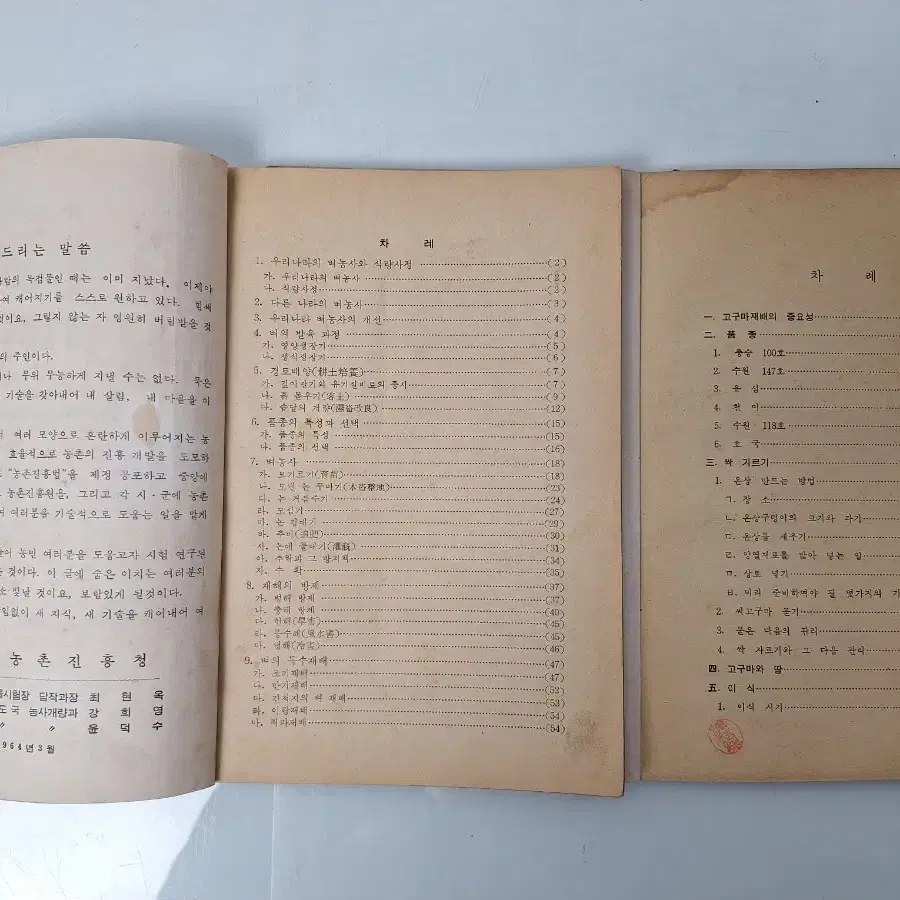 드리는 말씀
독점물인 때는 이미 지났다. 이제야
여 캐어지기를 스스로 원하고 있다. 힘써
것이요, 그렇지 않는 자 영원히 버림받을 것
의 주인이다.
나 무위 무능하게 지낼 수는 없다. 묵은
기술을 찾아내어 내 살림, 내 마을을 이
여러 모양으로 혼란하게 이루어지는 농
효율적으로 농촌의 진흥 개발을 도모하
"농촌진흥법"을 제정 공포하고 중앙에
농촌진흥원을, 그리고 각 시·군에 농촌
여 여러분을 기술적으로 도웁는 일을 맡게
농민 여러분을 도웁고자 시험 연구된
것이다. 이 글에 숨은 이치는 여러분의
빛날 것이요, 보람있게 될것이다.
없이 새 지식, 새 기술을 캐어내어 여
농촌진흥청
시험장 답작과장 최현옥
도국 농사개량과 강희영
〃 〃 윤덕수
964년 3월
차 례
1. 우리나라의 벼농사와 식량사정 (2)
가. 우리나라의 벼농사 (2)
나. 식량사정 (2)
2. 다른 나라의 벼농사 (3)
3. 우리나라 벼농사의 개선 (4)
4. 벼의 발육 과정 (4)
가. 영양생장기 (5)
나. 생식생장기 (6)
5. 경토배양(耕土培養) (7)
가. 깊이갈기와 유기질비료의 증시 (7)
나. 흙 돋우기(客土) (9)
다. 습답의 개량(濕畓改良) (12)
6. 품종의 특성과 선택 (15)
가. 품종의 특성 (15)
나. 품종의 선택 (16)
7. 벼농사 (18)
가. 모기르기(育苗) (18)
나. 모낸 논 꾸미기(本畓整地) (23)
다. 논 거름주기 (24)
라. 모심기 (27)
마. 논 김매기 (29)
바. 추비(追肥) (30)
사. 논에 물대기(灌漑) (31)
아. 추락과 그 방지책 (34)
자. 수 확 (35)
8. 재해의 방제 (37)
가. 병해 방제 (37)
나. 충해 방제 (40)
다. 한해 (45)
라. 풍수해(風水害) (45)
마. 냉해(冷害) (46)
9. 벼의 특수재배 (47)
가. 조기재배 (47)
나. 만기재배 (52)
다. 간척지의 벼 재배 (53)
라. 이랑재배 (54)
마. 직파재배 (54)
차 례
一. 고구마재배의 중요성
二. 품 종
1. 충승 100호
2. 수원 147호
3. 은 심
4. 천 미
5. 수원 118호
6. 호 국
三. 싹 기르기
1. 온상 만드는 방법
ㄱ. 장 소
ㄴ. 온상구덩이의 크기와 파기
ㄷ. 온상틀 세우기
ㄹ. 양열재료를 밟아 넣는 일
ㅁ. 상토 넣기
ㅂ. 미리 준비하여야 될 몇가지의 기
2. 씨고구마 묻기
3. 묻은 다음의 관리
4. 싹 자르기와 그 다음 관리
四. 고구마와 땅
五. 이 식
1. 이식 시기